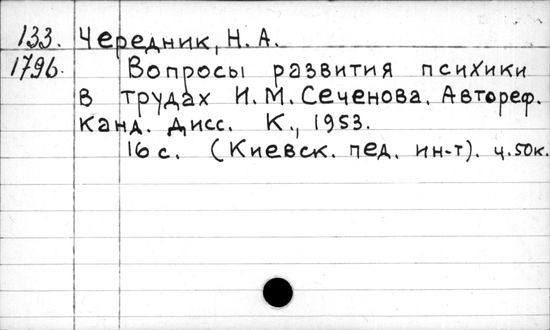 133. Чередник, Н. А.
1796. Вопросы развития психики
в трудах И. М. Сеченова. Автореф.
канд. дисс. К., 1953.
16 с. (Киевск. пед. ин-т). ц. 50 к.